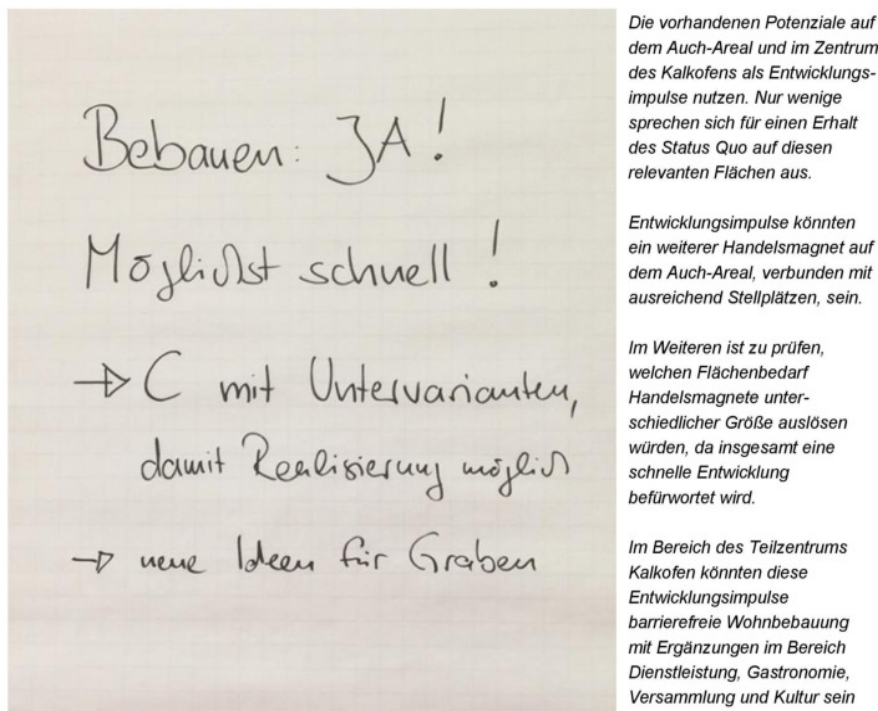 Bebauen: JA!
Möglichst schnell!
→ C mit Untervarianten,
damit Realisierung möglich
→ neue Ideen für Graben
Die vorhandenen Potenziale auf
dem Auch-Areal und im Zentrum
des Kalkofens als Entwicklungs-
impulse nutzen. Nur wenige
sprechen sich für einen Erhalt
des Status Quo auf diesen
relevanten Flächen aus.
Entwicklungsimpulse könnten
ein weiterer Handelsmagnet auf
dem Auch-Areal, verbunden mit
ausreichend Stellplätzen, sein.
Im Weiteren ist zu prüfen,
welchen Flächenbedarf
Handelsmagnete unter-
schiedlicher Größe auslösen
würden, da insgesamt eine
schnelle Entwicklung
befürwortet wird.
Im Bereich des Teilzentrums
Kalkofen könnten diese
Entwicklungsimpulse
barrierefreie Wohnbebauung
mit Ergänzungen im Bereich
Dienstleistung, Gastronomie,
Versammlung und Kultur sein